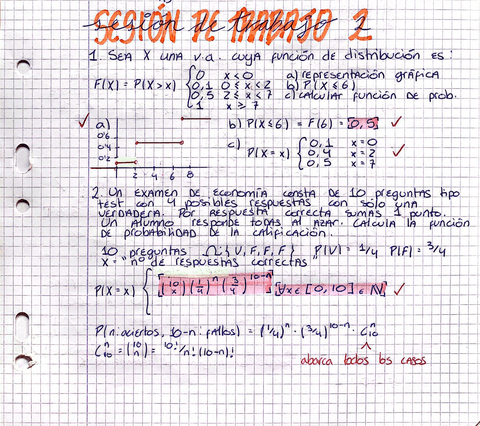 SESIÓN DE TRABAJO 2
sesión de trabajo
1. SEA X UNA v.a. cuya función de distribución es:
F(X) = P(X>x) { 0 x<0
0,1 0≤x<2
0,5 2≤x<7
1 x≥7
a) representación gráfica
b) P(X≤6)
c) calcular función de prob.
a)
0'6
0'4
0'2
2 4 6 8
b) P(X≤6) = F(6) = 0,5
c) P(X=x) { 0,1 x=0
0,4 x=2
0,5 x=7
2. Un examen de economía consta de 10 preguntas tipo
test con 4 posibles respuestas con sólo una
verdadera. Por respuesta correcta sumas 1 punto.
Un alumno responde todas al azar. Calcula la función
de probabilidad de la calificación.
10 preguntas Ω{V, F, F, F} P(V) = 1/4 P(F) = 3/4
X = "nº de respuestas correctas"
P(X=x) { (10 x) (1/4)^n (3/4)^10-n ∀x∈[0,10] ∈ N
P(n: aciertos, 10-n: fallos) = (1/4)^n · (3/4)^10-n · C^n_10
C^n_10 = (10 n) = 10!/n!(10-n)!
abarca todos los casos